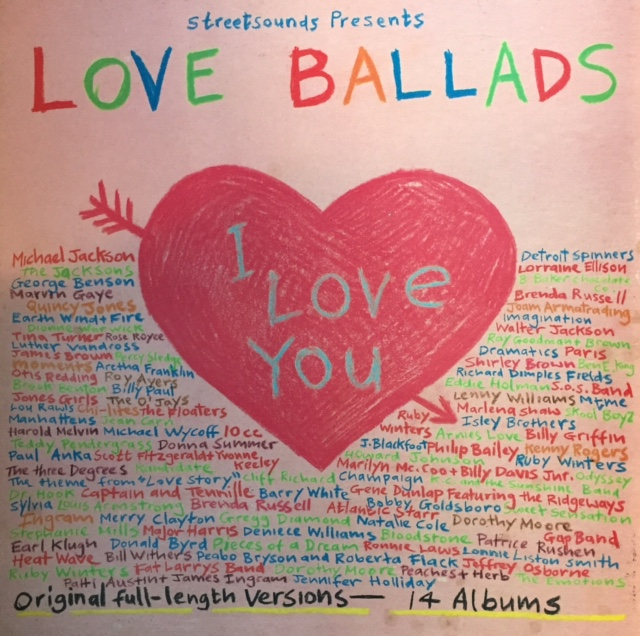 Streetsounds Presents
LOVE BALLADS
I LOVE YOU
Michael Jackson
The Jacksons
George Benson
Marvin Gaye
Quincy Jones
Earth Wind + Fire
Dionne Warwick
Tina Turner Rose Royce
Luther Vandross
James Brown Percy Sledge
Moments Aretha Franklin
Otis Redding Roy Ayers
Brook Benton Billy Paul
Jones Girls The O'Jays
Lou Rawls Chi-lites The Floaters
Manhattens Jean Carn
Harold Melvin Michael Wycoff 10cc
Teddy Pendergrass Donna Summer
Paul Anka Scott Fitzgerald + Yvonne Keeley
The three Degrees Kandidate
Detroit Spinners
Lorraine Ellison
B Baker Chocolate Co.
Brenda Russell
Joan Armatrading
Imagination
Walter Jackson
Ray Goodman + Brown
Dramatics Paris
Shirley Brown Ben E King
Richard Dimples Fields
Eddie Holman S.o.s. Band
Lenny Williams Mtume
Marlena Shaw Skool Boyz
Isley Brothers
Ruby Winters Arnies Love Billy Griffin
J. Blackfoot Philip Bailey Kenny Rogers
Howard Johnson Ruby Winters
Marilyn Mc.Coo + Billy Davis Jnr. Odyssey
The theme from "Love Story" Cliff Richard Champaign K.C. and the Sunshine Band
Dr. Hook Captain and Tennille Barry White Gene Dunlap Featuring the Ridgeways
Sylvia Louis Armstrong Brenda Russell Atlantic Starr Bobby Goldsboro Sweet Sensation
Ingram Merry Clayton Gregg Diamond Natalie Cole Dorothy Moore
Stephanie Mills Major Harris Deniece Williams Bloodstone Patrice Rushen Gap Band
Earl Klugh Donald Byrd Pieces of a Dream Ronnie Laws Lonnie Liston Smith
Heat Wave Bill Withers Peabo Bryson and Roberta Flack Jeffrey Osborne
Ruby Winters Fat Larrys Band Dorothy Moore Peaches + Herb The Emotions
Patti Austin + James Ingram Jennifer Holliday
Original full-length Versions — 14 Albums